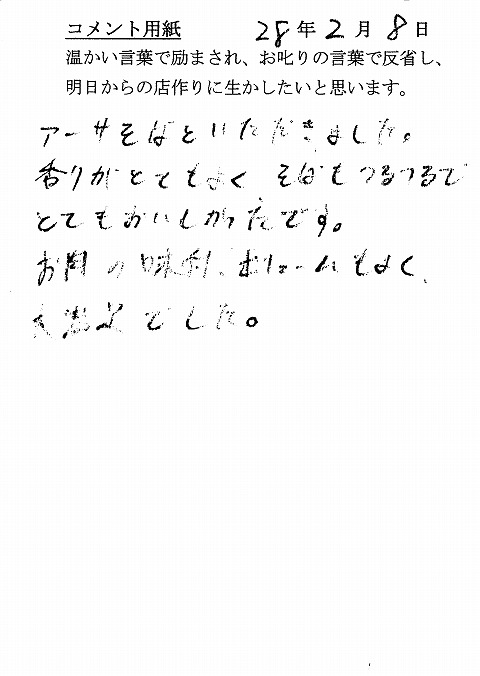 コメント用紙 28年2月8日
温かい言葉で励まされ、お叱りの言葉で反省し、
明日からの店作りに生かしたいと思います。
アーサそばといただきました。
香りがとてもよく そばもつるつるで
とてもおいしかったです。
お肉の味付、ボリュームもよく、
大満足でした。